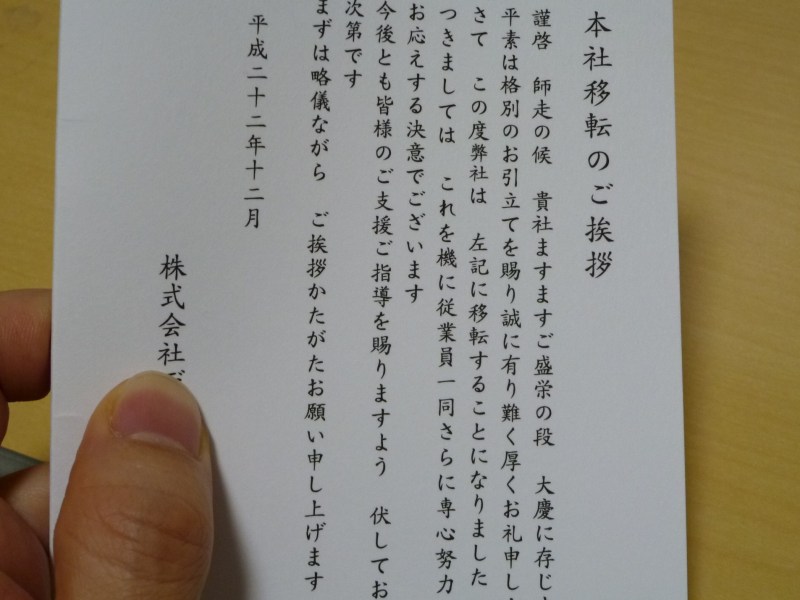 本社移転のご挨拶
謹啓　師走の候　貴社ますますご盛栄の段　大慶に存じ
平素は格別のお引立てを賜り誠に有り難く厚くお礼申し
さて　この度弊社は　左記に移転することになりました
つきましては　これを機に従業員一同さらに専心努力
お応えする決意でございます
今後とも皆様のご支援ご指導を賜りますよう　伏してお
次第です
まずは略儀ながら　ご挨拶かたがたお願い申し上げます
平成二十二年十二月
株式会社